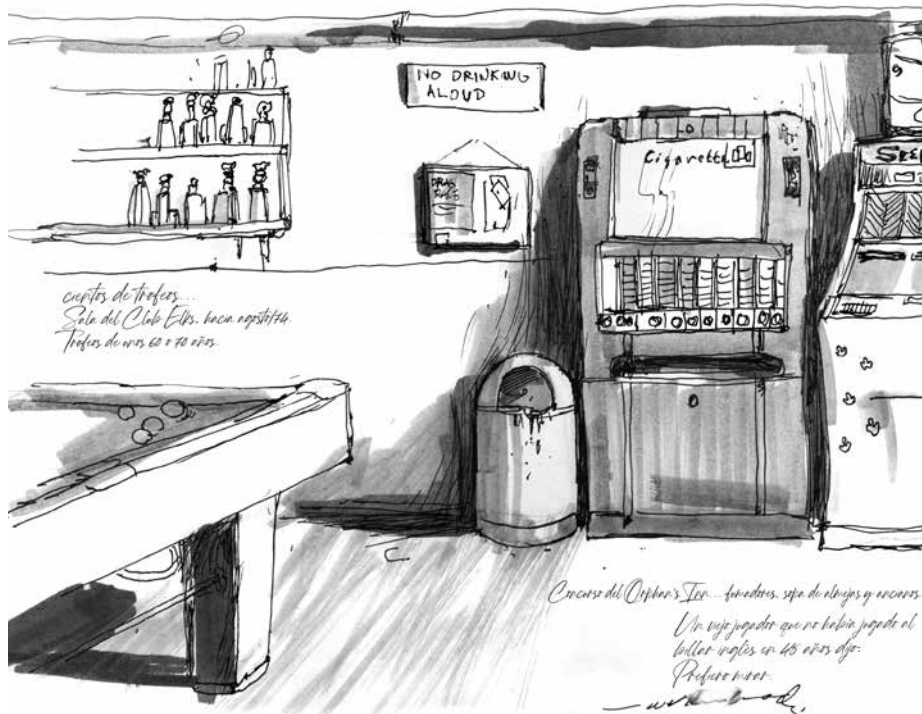 NO DRINKING
ALOUD
Cigarette
cientos de trofeos...
Sala del Club Elks. hacia agosto/74.
Trofeos de unos 60 o 70 años.
Concurso del Orphan's Inn... fumadores, sopa de almejas y ancianos.
Un viejo jugador que no había jugado al
billar inglés en 45 años dijo:
Prefiero mirar.